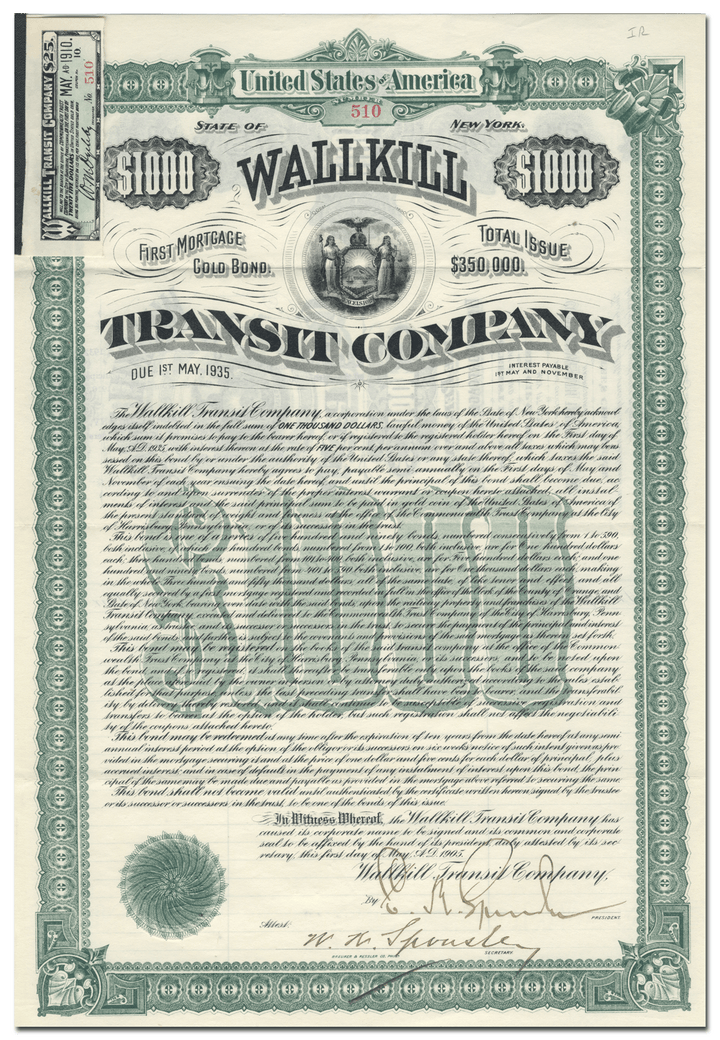 IR
WALLKILL TRANSIT COMPANY $25.
MAY. AD. 1910.
10
No 510
United States of America
NUMBER
510
STATE OF NEW YORK.
$1000 WALLKILL $1000
FIRST MORTGAGE
GOLD BOND.
TOTAL ISSUE
$350,000.
EXCELSIOR
TRANSIT COMPANY
DUE 1ST MAY, 1935.
INTEREST PAYABLE
1ST MAY AND NOVEMBER
The Wallkill Transit Company, a corporation under the laws of the State of New York hereby acknowl
edges itself indebted in the full sum of ONE THOUSAND DOLLARS, lawful money of the United States of America,
which sum it promises to pay to the bearer hereof, or if registered to the registered holder hereof, on the First day of
May, A.D. 1935, with interest thereon at the rate of FIVE per cent, per annum over and above all taxes which may be as
sessed on this bond by or under the authority of the United States or any state thereof, which taxes the said
Wallkill Transit Company hereby agrees to pay, payable semi annually on the First days of May and
November of each year ensuing the date hereof and until the principal of this bond shall become due, ac
cording to and upon surrender of the proper interest warrant or coupon hereto attached, all instal
ments of interest and the said principal sum to be paid in gold coin of the United States of America of
the present standard weight and fineness at the office of the Commonwealth Trust Company at the City
of Harrisburg, Pennsylvania, or of its successor in the trust.
This bond is one of a series of five hundred and ninety bonds, numbered consecutively from 1 to 590,
both inclusive, of which four hundred bonds, numbered from 1 to 400, both inclusive, are for One hundred dollars
each, three hundred bonds, numbered from 401 to both inclusive, are for Five hundred dollars each, and one
hundred and ninety bonds, numbered from to 590 both inclusive, are for One thousand dollars each, making
in the whole Three hundred and fifty thousand dollars, all of the same date of like tenor and effect, and all
equally secured by a first mortgage registered and recorded in full in the office of the clerk of the county of Orange, and
State of New York, bearing even date with the said bonds, upon the railway property and franchises of said Wallkill
Transit Company, executed and delivered to the Commonwealth Trust Company of the City of Harrisburg, Penn
sylvania, as trustee, and its successors in the trust, to secure the payment of the principal and interest
of the said bonds, and further subject to the covenants and provisions of the said mortgage as therein set forth.
This bond may be registered on the books of the said transit company at the office of the Common
wealth Trust Company in the City of Harrisburg, Pennsylvania, or its successors, and be noted upon
the bond, after which it shall not be transferable except by transfer upon the books of the said company
at the place aforesaid by the owner in person or by attorney duly authorized according to the rules estab
lished for that purpose, unless the last preceding transfer shall have been to bearer, and the transferabil
ity by delivery thereby restored, and it shall continue to be susceptible of successive registration and
transfers to bearer at the option of the holder, but such registration shall not affect the negotiabili
ty of the coupons attached hereto.
This bond may be redeemed at any time after the expiration of ten years from the date hereof at any semi
annual interest period at the option of the obligor or its successors on six weeks notice of such intent given as pro
vided in the mortgage securing it and at the price of one dollar and five cents for each dollar of principal plus
accrued interest, and in case of default in the payment of any instalment of interest upon this bond, the prin
cipal of the same may be made due and payable as provided in the mortgage above referred to securing the same.
This bond shall not become valid until authenticated by the certificate written hereon signed by the trustee
or its successor or successors in the trust, to be one of the bonds of this issue.
In Witness Whereof, the Wallkill Transit Company has
caused its corporate name to be signed and its common and corporate
seal to be affixed by the hand of its president, duly attested by its sec
retary, this first day of May, A.D. 1905.
Wallkill Transit Company,
By
PRESIDENT
Attest:
W. H. Sponsler
SECRETARY.
$1000